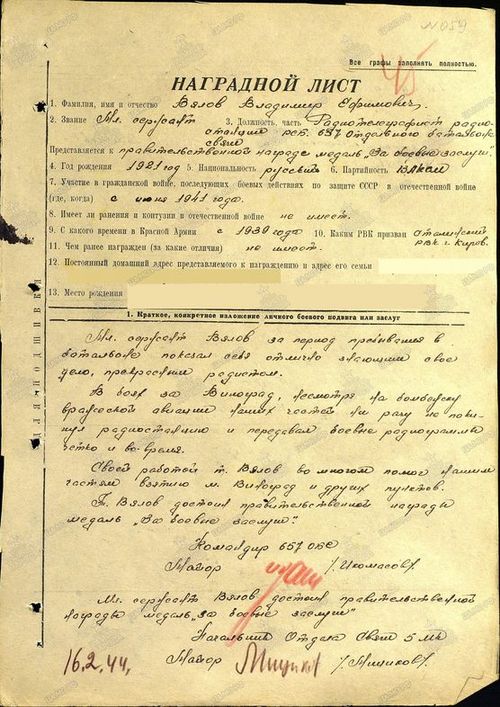 N 059
45
Все графы заполнять полностью.
НАГРАДНОЙ ЛИСТ
1. Фамилия, имя и отчество Вялов Владимир Ефимович
2. Звание Мл. сержант 3. Должность, часть Радиотелеграфист радио-
станции РСБ 657 отдельного батальона
связи
Представляется к правительственной награде медаль "За боевые заслуги"
4. Год рождения 1921 год 5. Национальность русский 6. Партийность ВЛКСМ
7. Участие в гражданской войне, последующих боевых действиях по защите СССР в отечественной войне
(где, когда) с июня 1941 года.
8. Имеет ли ранения и контузии в отечественной войне не имеет.
9. С какого времени в Красной Армии с 1939 года 10. Каким РВК призван Сталинский
РВК г. Киров.
11. Чем ранее награжден (за какие отличия) не имеет.
12. Постоянный домашний адрес представляемого к награждению и адрес его семьи
13. Место рождения
ДЛЯ ПОДШИВКИ
1. Краткое, конкретное изложение личного боевого подвига или заслуг
Мл. сержант Вялов за период пребывания в
батальоне показал себя отлично знающим свое
дело, прекрасным радистом.
В боях за Виноград, несмотря на бомбежку
вражеской авиации наших частей ни разу не поки-
нул радиостанцию и передавал боевые радиограммы
четко и во-время.
Своей работой т. Вялов во многом помог нашим
частям взятию м. Виноград и других пунктов.
Т. Вялов достоин правительственной награды
медаль "За боевые заслуги"
Командир 657 ОБС
Майор
Мл. сержант Вялов достоин правительственной
награды медаль "за боевые заслуги"
Начальник Отдела Связи 5 МК
16.2.44. Майор